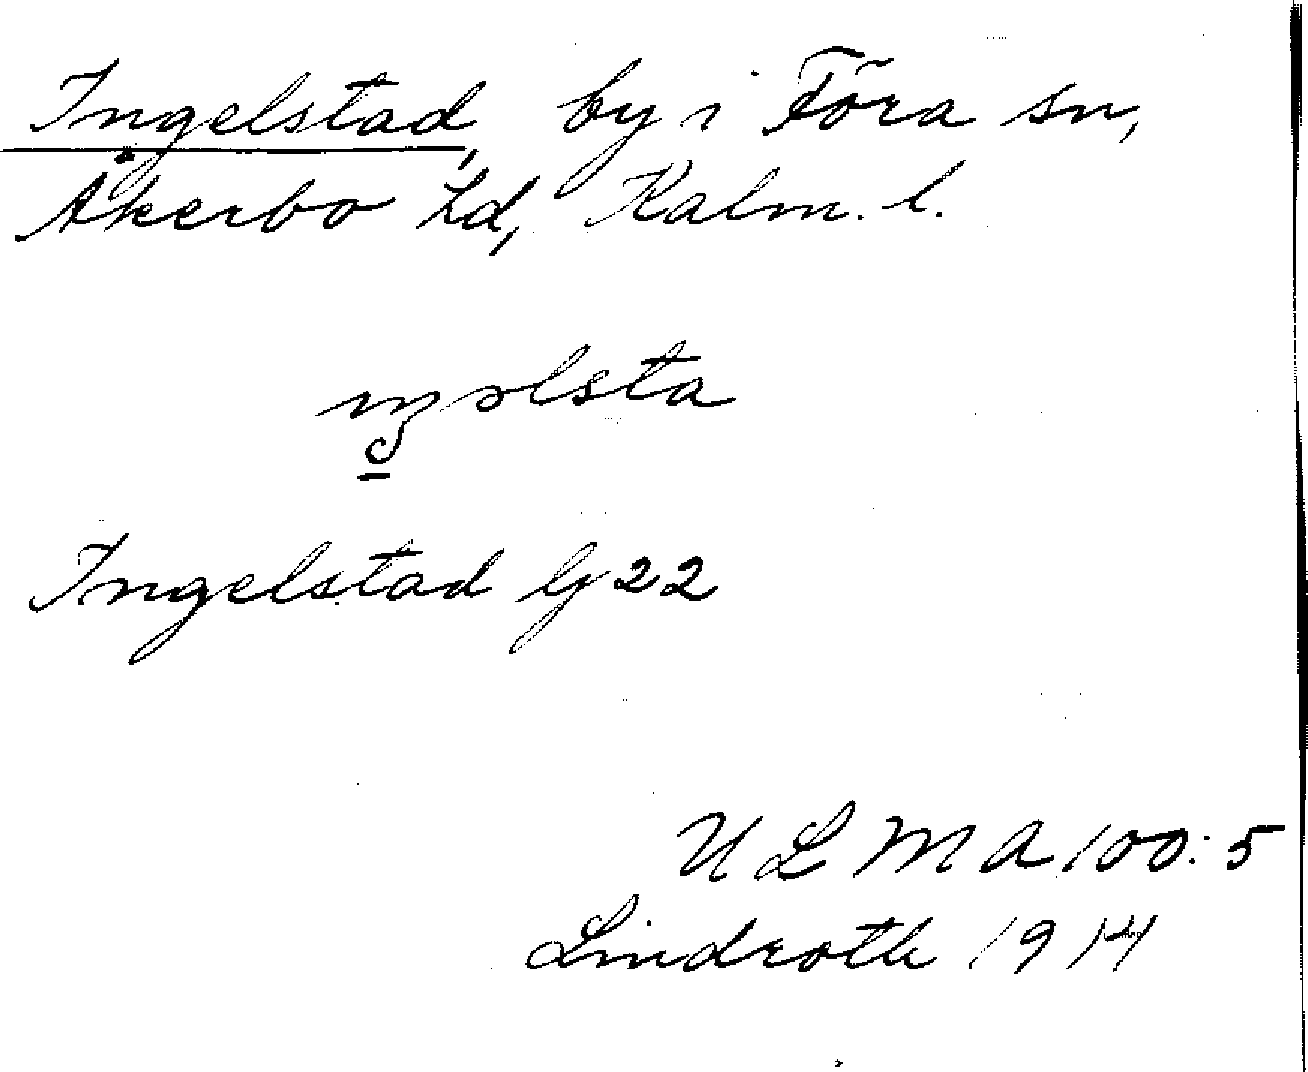 Ingelstad, by i Föra sn,
Åkerbo hd, Kalm. l.
Ingelstad bg 22
ULMA 100:5
Lindroth 1914